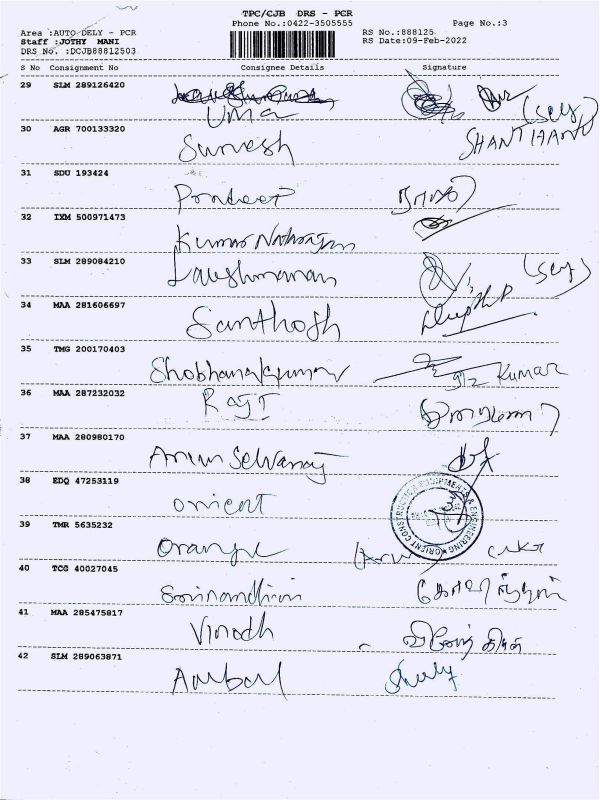 TPC/CJB DRS - PCR
Phone No.:0422-3505555
Page No.:3
Area :AUTO DELY - PCR
RS No.:888125
Staff :JOTHY MANI
RS Date:09-Feb-2022
DRS No. :DCJB88812503
S No Consignment No Consignee Details Signature
29 SLM 289126420
Uma (self)
30 AGR 700133320
Suresh SHANTHANU
31 SDU 193424
Pradeep
32 IXM 500971473
Kumar Natrajan
33 SLM 289084210
Lakshmanan (self)
34 MAA 281606697
Santhosh
35 TMG 200170403
Kumar
36 MAA 287232032
RAJI
37 MAA 280980170
Arun Selvaraj
38 EDQ 47253119
orient
ORIENT CONSTRUCTION EQUIPMENTS & ENGINEERING
39 TMR 5635232
Orange
40 TCG 40027045
41 MAA 285475817
Vinodh
42 SLM 289063871
Ambal